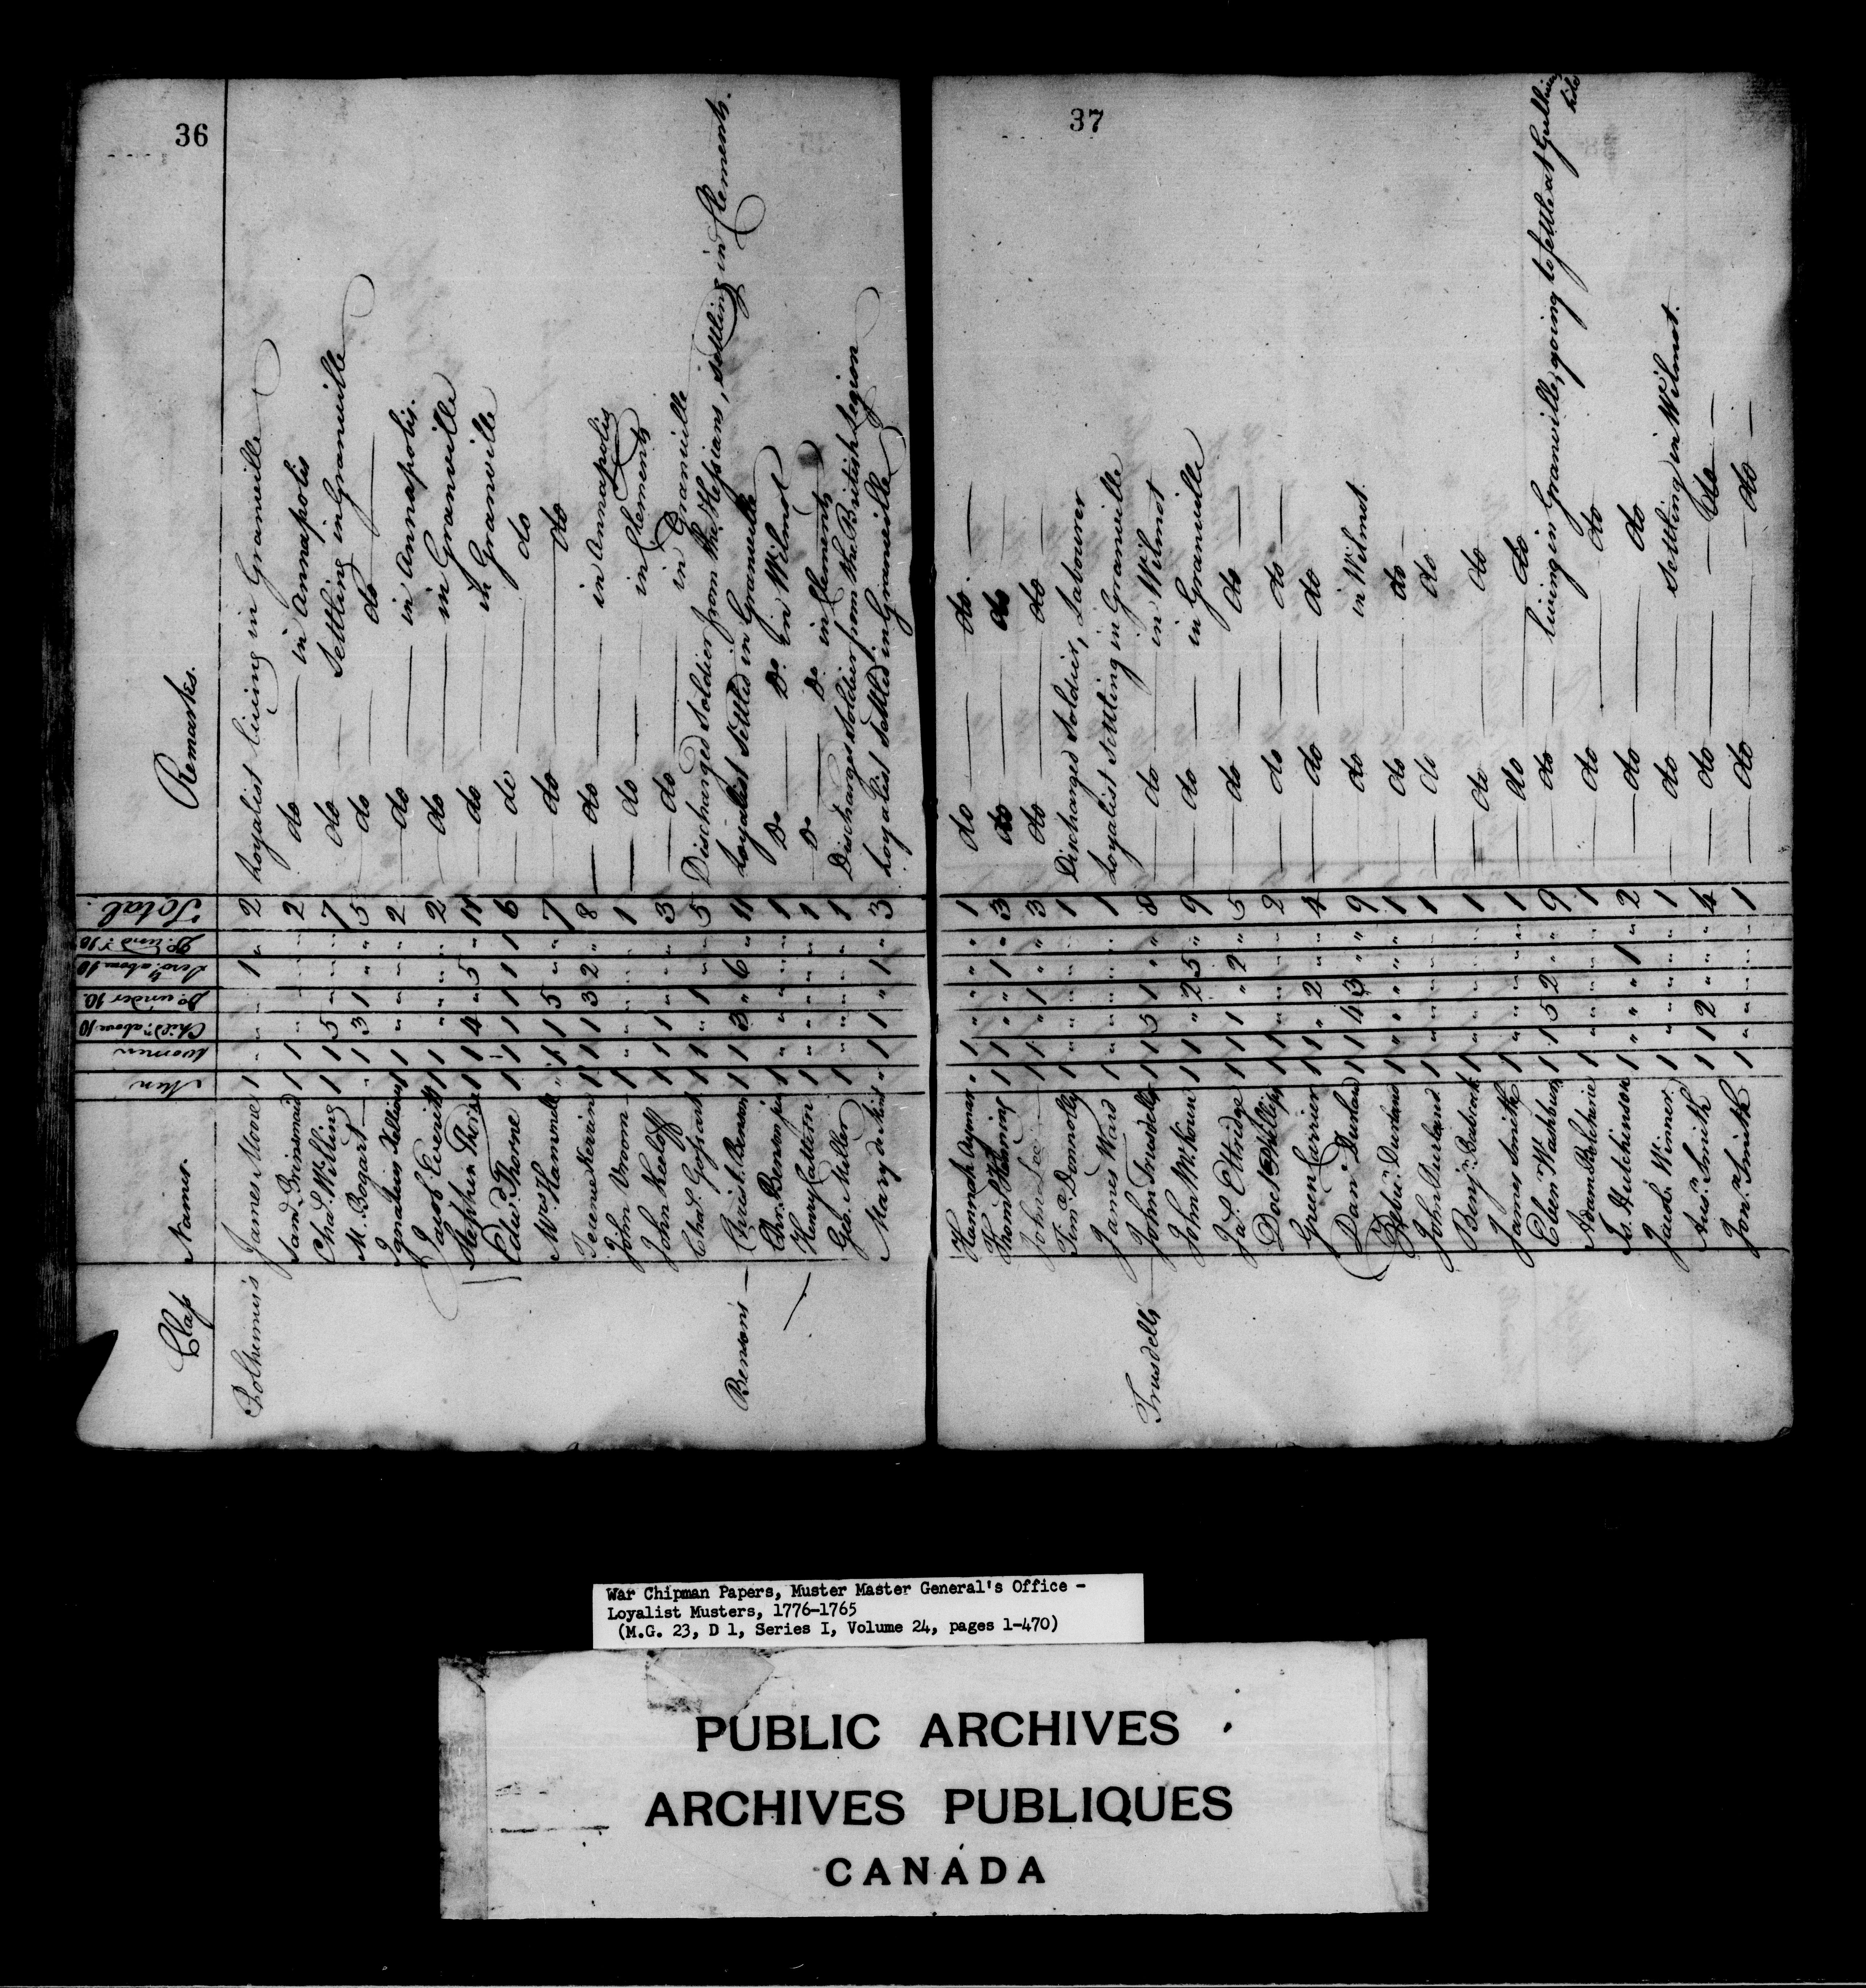 36
Class Names. Men Women Child. above 10 Do. under 10. Serv. above 10 Do. und. 10 Total. Remarks.
Polhemus's James Moore 1 " " " 1 " 2 Loyalist living in Granville
1 1 " " " " 2 do in Annapolis
Chas. Willing 1 1 5 " " " 7 do Settling in Granville
M. Bogart " 1 3 1 " " 5 do do
Ignatius 1 1 " " " " 2 do in Annapolis.
Jacob Everitt 1 1 " " " " 2 do in Granville
Stephen Thorne 1 1 4 " 5 " 11 do in Granville
Edwd. Thorne 1 1 1 1 1 1 6 do do
Hammell " 1 1 5 " " 7 do do
1 1 1 3 2 " 8 do in Annapolis
John Vroom 1 " " " " " 1 do in Clements
John Keeloff 1 1 1 " " " 3 do in Granville
Chas. 1 1 " 1 " " 5 Discharged Soldier from the Hessians, settling in Clements.
Benson's Christr. Benson 1 1 3 " 6 " 11 Loyalist settled in Granville
Chr. Benson junr. 1 " " " " " 1 Do. Do. in Wilmot
Henry Cattern 1 " " " " " 1 Do. Do. in Clements
Geo. Miller 1 " " " " " 1 Discharged soldier from the British Legion
Mary " 1 1 " 1 " 3 Loyalist settled in Granville
37
Hannah Aymar " 1 " " " " 1 do do
Thoms. Fleming 1 1 " " 1 " 3 do do
John Lee 1 1 " 1 " " 3 do do
Tim. Donnolly 1 " " " " " 1 Discharged Soldier, Labourer
James Ward 1 " " " " " 1 Loyalist settling in Granville
Trusdells John Trusdell 1 1 5 1 " " 8 do in Wilmot
John McKown 1 1 " 2 5 " 9 do in Granville
Jas. Ettridge 1 1 1 " 2 " 5 do do
Doctr. Phillips 1 1 " " " " 2 do do
Green Currier 1 1 " 2 " " 4 do do
Danl. Durland 1 1 4 3 " " 9 do in Wilmot
Zebu. Durland 1 " " " " " 1 do do
John Durland 1 " " " " " 1 do do
Benjn. 1 " " " " " 1 do do
James Smith 1 " " " " " 1 do do
Eben Washburn 1 1 5 2 " " 9 do living in Granville, going to settle at Gulliver's
hole
Adam 1 " " " " " 1 do do
Js. Hutchinson 1 " " " 1 " 2 do do
Jacob Winner 1 " " " " " 1 do settling in Wilmot.
Smith 1 1 2 " " " 4 do do
Jonn. Smith 1 " " " " " 1 do do
War Chipman Papers, Muster Master General's Office -
Loyalist Musters, 1776-1765
(M.G. 23, D 1, Series I, Volume 24, pages 1-470)
PUBLIC ARCHIVES
ARCHIVES PUBLIQUES
CANADA